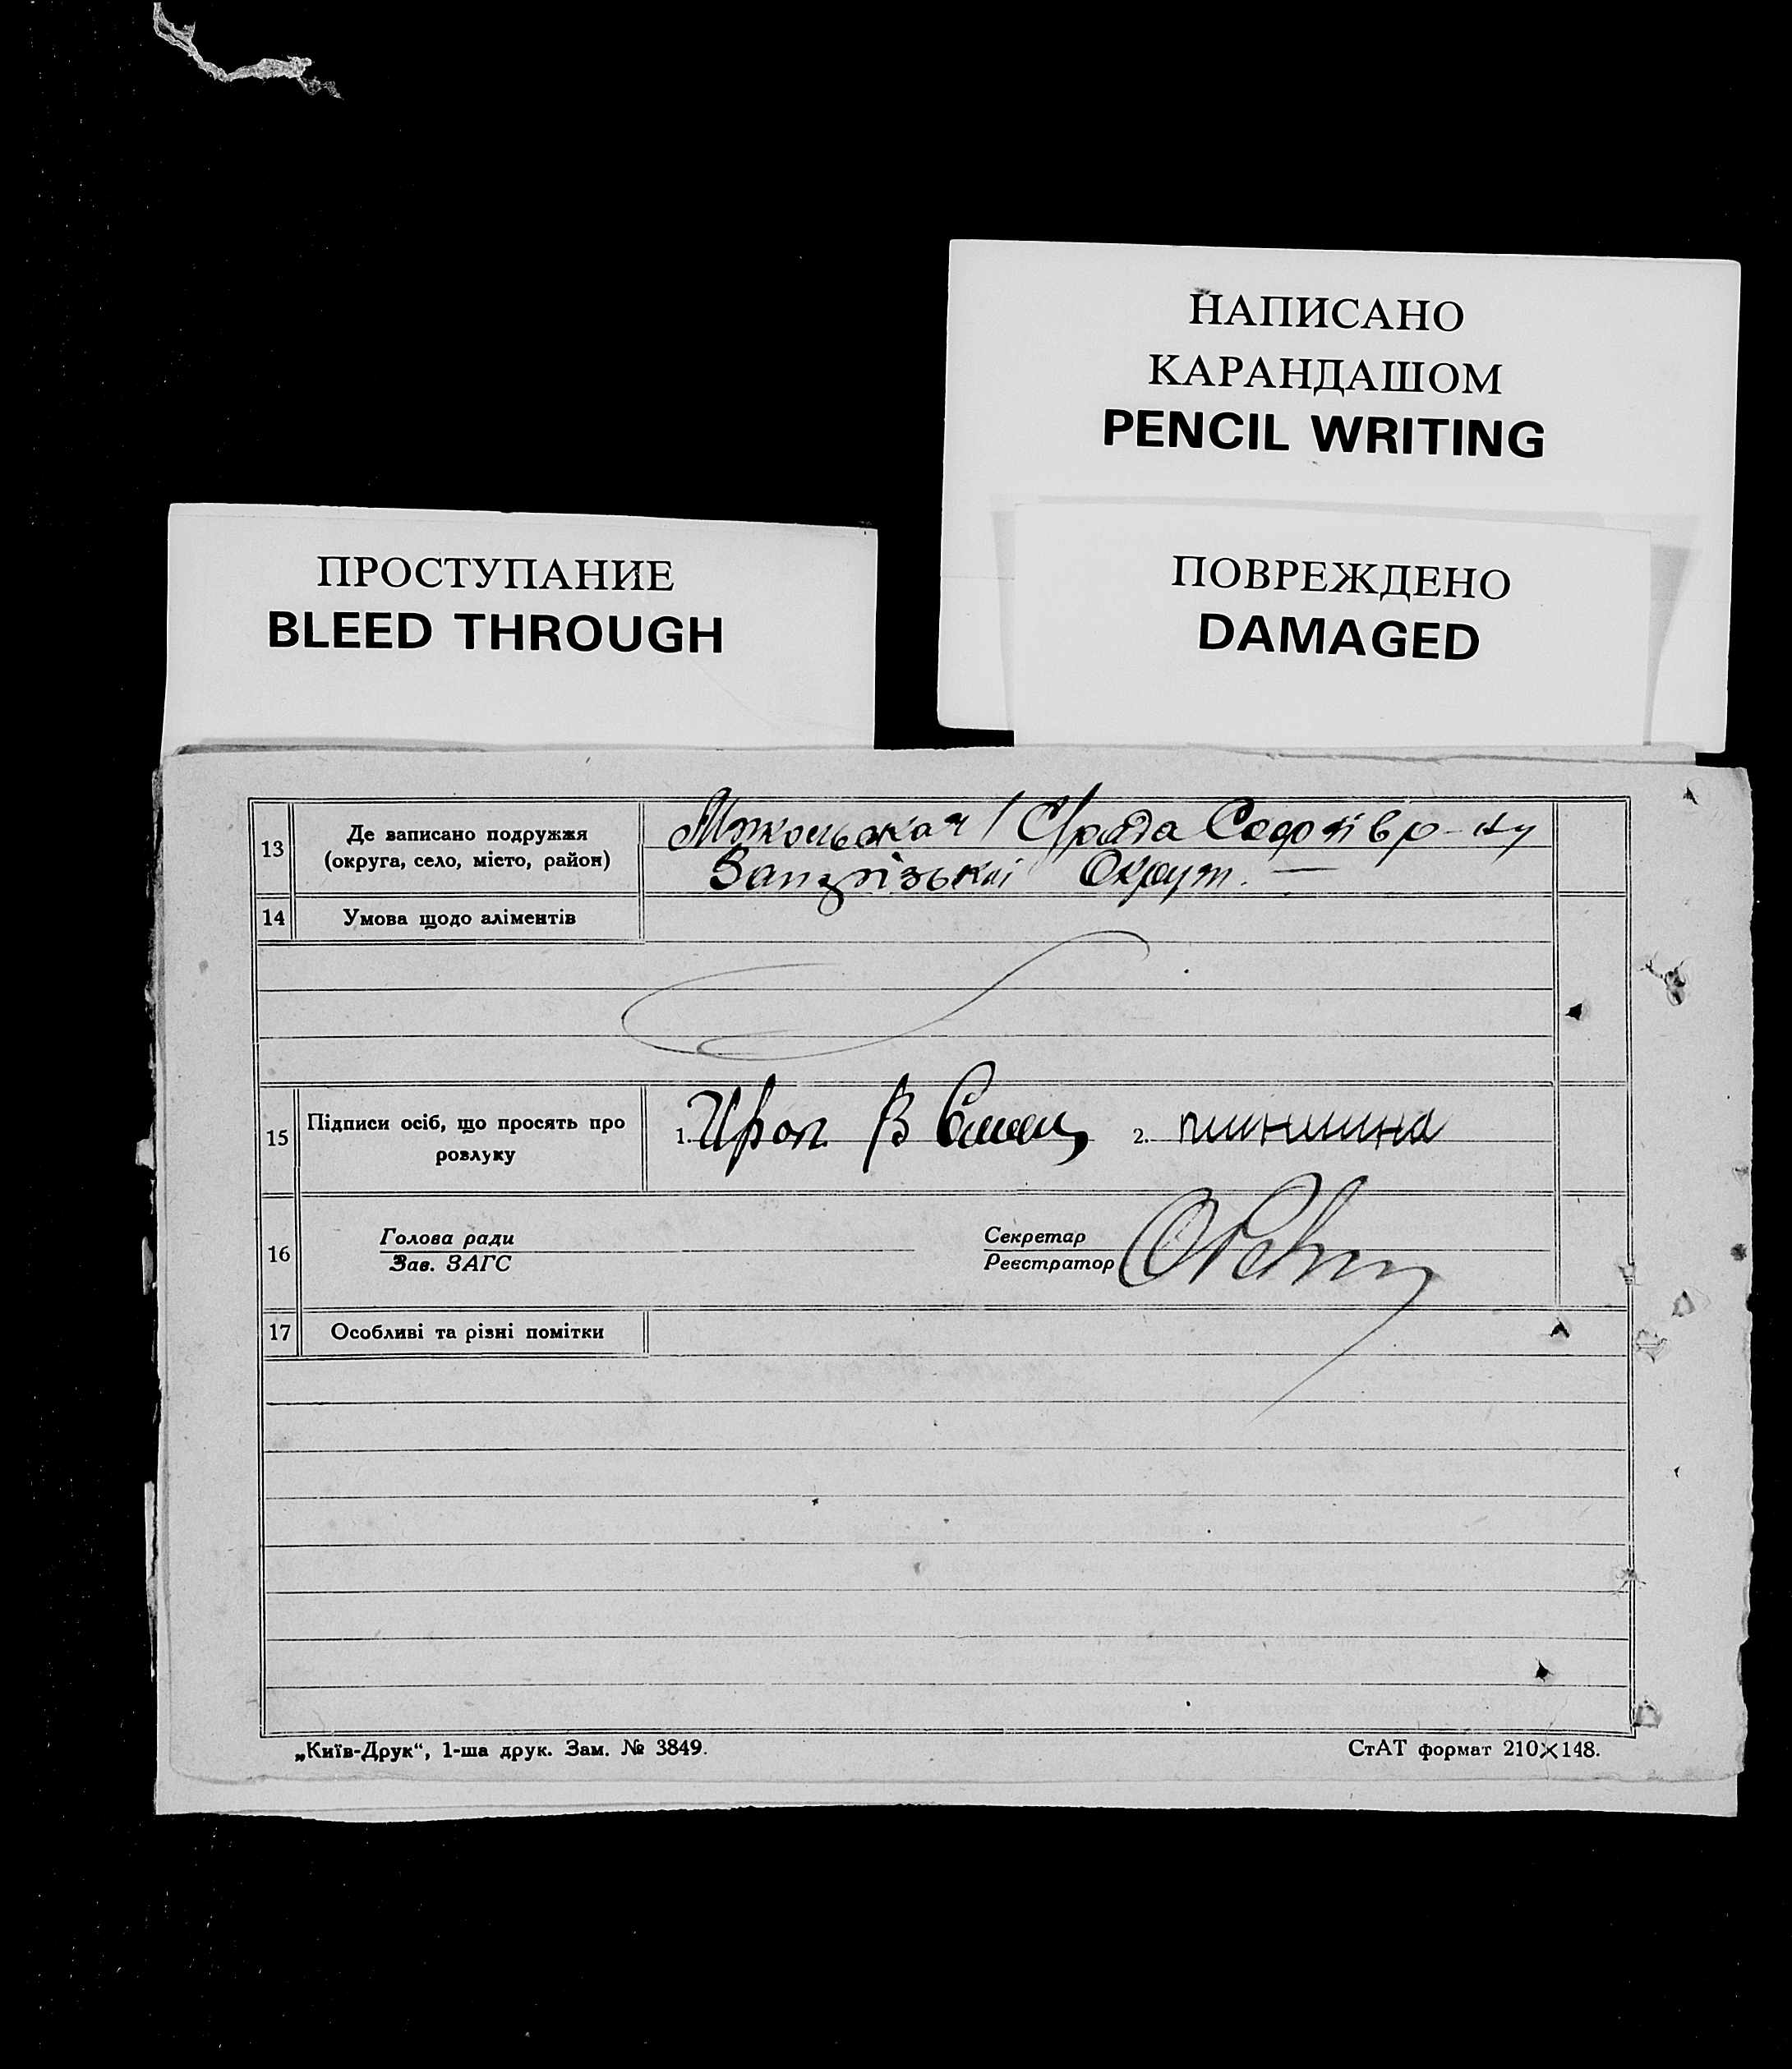 НАПИСАНО
КАРАНДАШОМ
PENCIL WRITING
ПРОСТУПАНИЕ
BLEED THROUGH
ПОВРЕЖДЕНО
DAMAGED
13
Де записано подружжя
(округа, село, місто, район)
Округ.
14
Умова щодо аліментів
15
Підписи осіб, що просять про
розлуку
1.
2.
16
Голова ради
Зав. ЗАГС
Секретар
Реєстратор
17
Особливі та різні помітки
„Київ-Друк“, 1-ша друк. Зам. № 3849.
СтАТ формат 210×148.